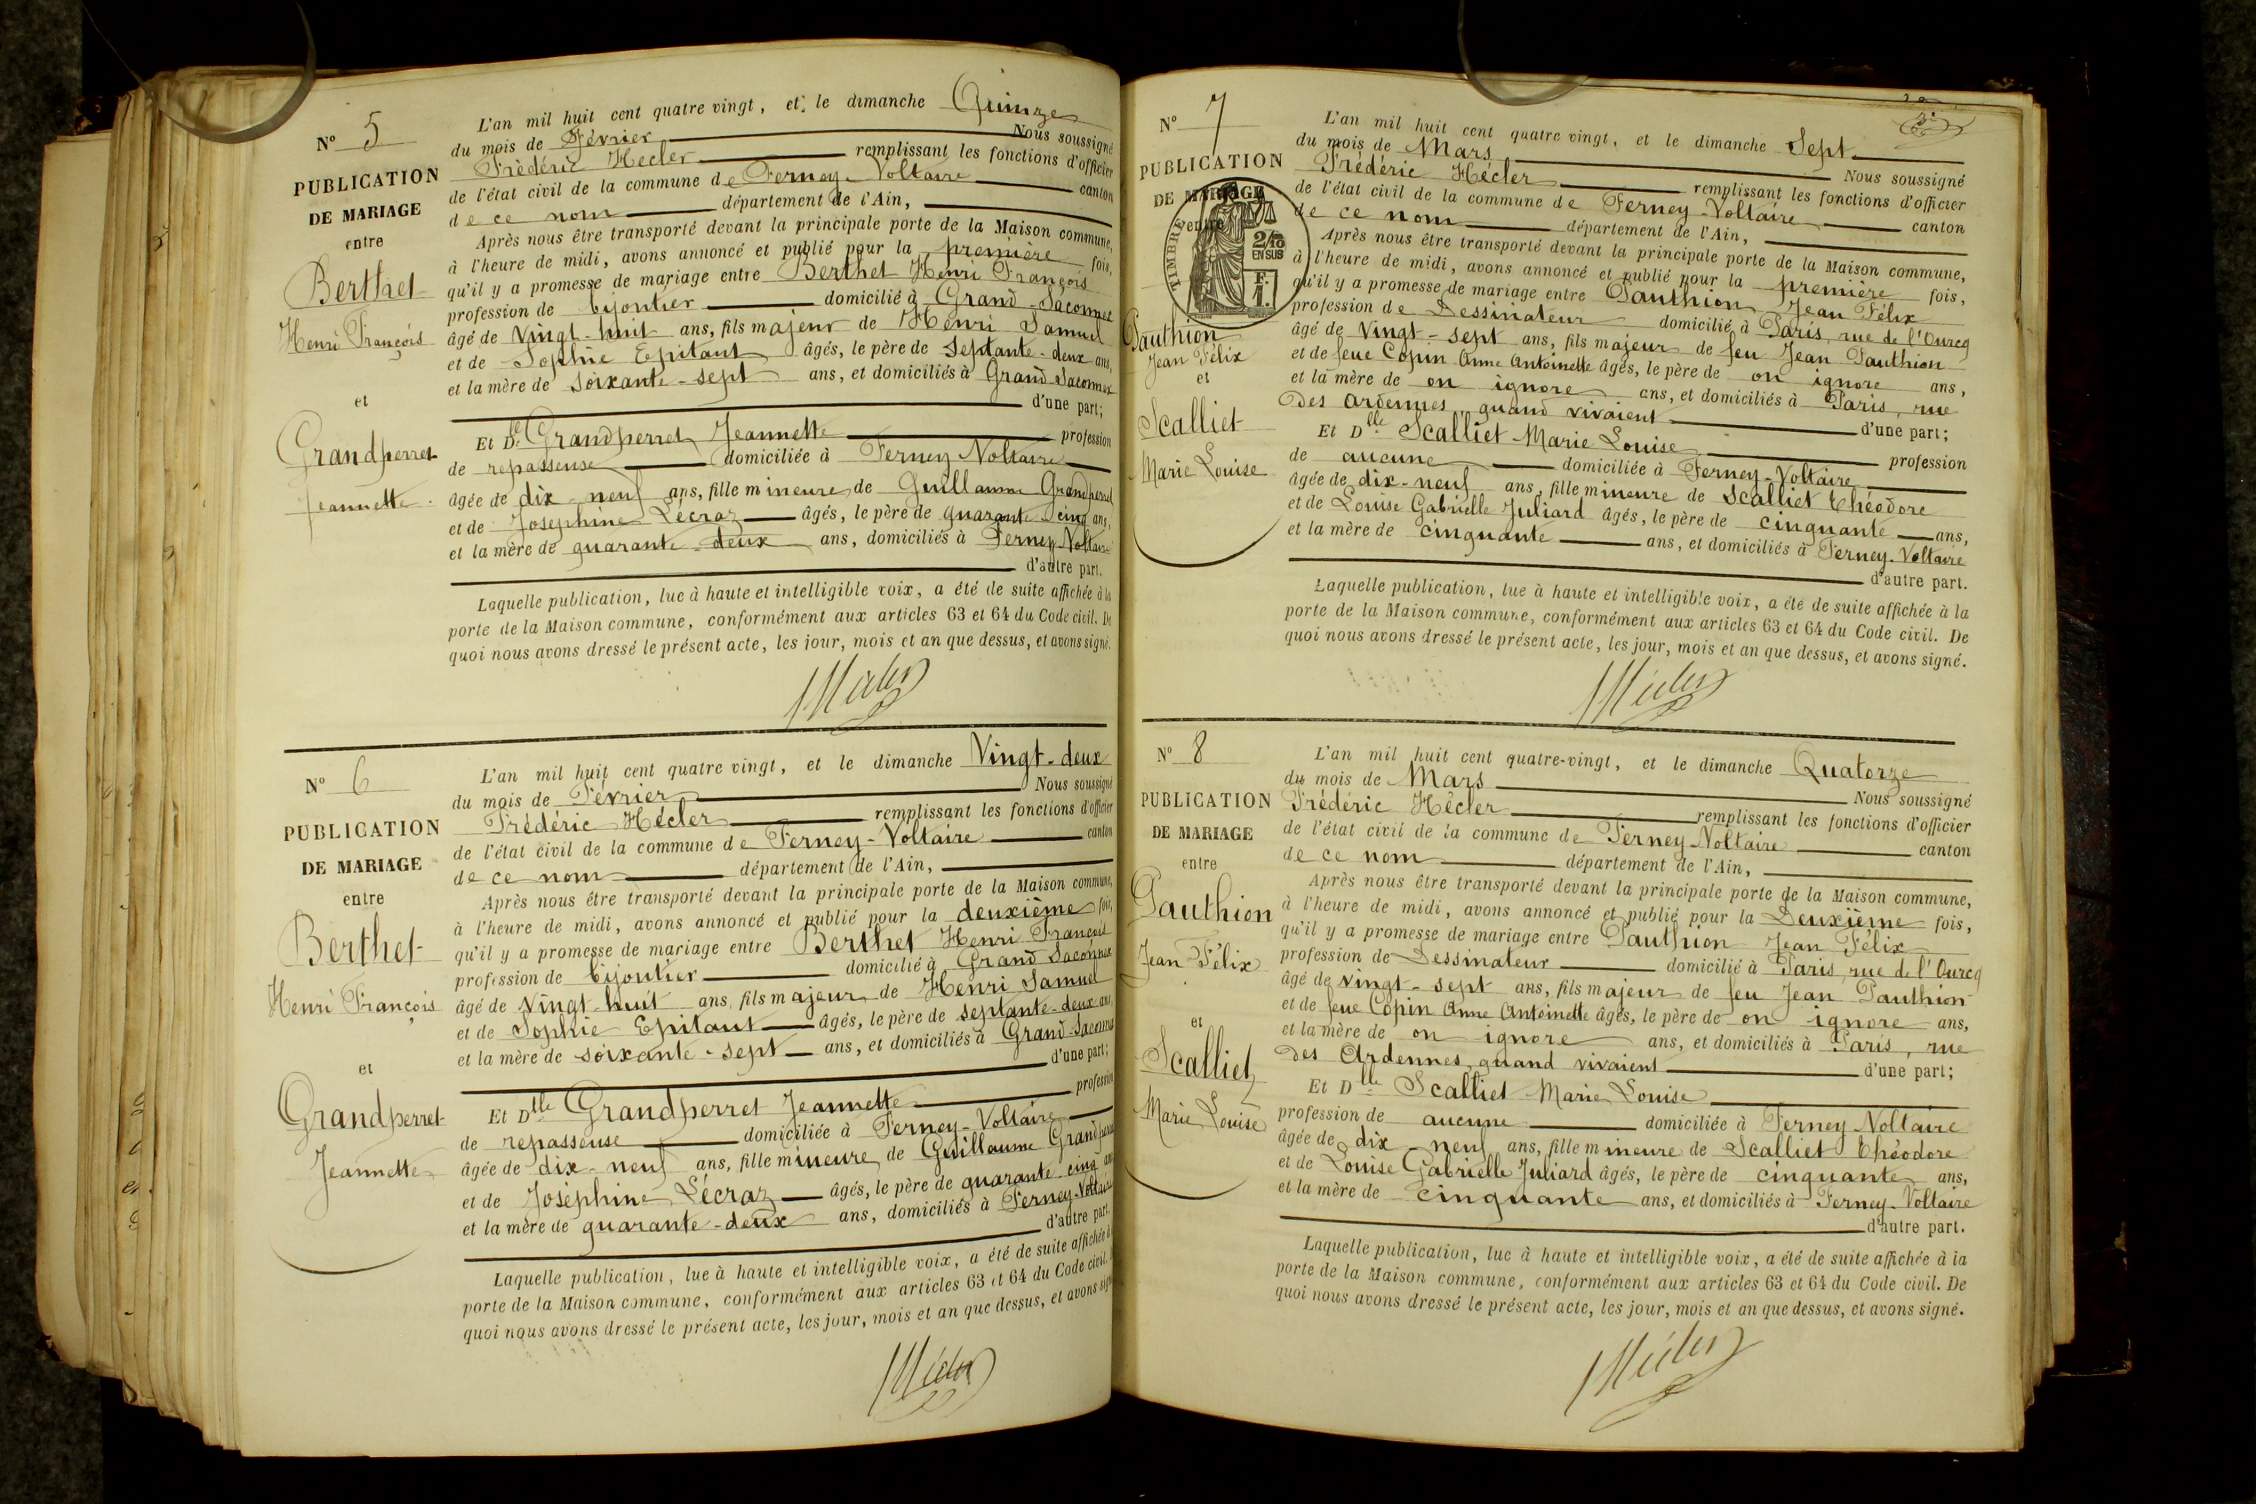 N° 5
PUBLICATION
DE MARIAGE
entre
Berthet
Henri François
et
Grandperret
Jeannette
L'an mil huit cent quatre vingt, et le dimanche Quinze
du mois de Février Nous soussigné
Frédéric Hécler remplissant les fonctions d'officier
de l'état civil de la commune de Ferney-Voltaire canton
de ce nom département de l'Ain,
Après nous être transporté devant la principale porte de la Maison commune,
à l'heure de midi, avons annoncé et publié pour la première fois,
qu'il y a promesse de mariage entre Berthet Henri François
profession de bijoutier domicilié à Grand-Saconnex
âgé de Vingt-huit ans, fils majeur de Henri Samuel
et de Sophie Epitaut âgés, le père de septante-deux ans,
et la mère de soixante-sept ans, et domiciliés à Grand-Saconnex
d'une part;
Et Dlle Grandperret Jeannette profession
de repasseuse domiciliée à Ferney Voltaire
âgée de dix-neuf ans, fille mineure de Guillaume Grandperret
et de Joséphine Lécraz âgés, le père de quarante-cinq ans,
et la mère de quarante-deux ans, domiciliés à Ferney-Voltaire
d'autre part.
Laquelle publication, lue à haute et intelligible voix, a été de suite affichée à la
porte de la Maison commune, conformément aux articles 63 et 64 du Code civil. De
quoi nous avons dressé le présent acte, les jour, mois et an que dessus, et avons signé.
Hécler
N° 6
PUBLICATION
DE MARIAGE
entre
Berthet
Henri François
et
Grandperret
Jeannette
L'an mil huit cent quatre vingt, et le dimanche Vingt-deux
du mois de Février Nous soussigné
Frédéric Hécler remplissant les fonctions d'officier
de l'état civil de la commune de Ferney-Voltaire canton
de ce nom département de l'Ain,
Après nous être transporté devant la principale porte de la Maison commune,
à l'heure de midi, avons annoncé et publié pour la deuxième fois,
qu'il y a promesse de mariage entre Berthet Henri François
profession de bijoutier domicilié à Grand Saconnex
âgé de Vingt-huit ans, fils majeur de Henri Samuel
et de Sophie Epitaut âgés, le père de septante-deux ans,
et la mère de soixante-sept ans, et domiciliés à Grand-Saconnex
d'une part;
Et Dlle Grandperret Jeannette profession
de repasseuse domiciliée à Ferney-Voltaire
âgée de dix-neuf ans, fille mineure de Guillaume Grandperret
et de Joséphine Lécraz âgés, le père de quarante-cinq ans
et la mère de quarante-deux ans, domiciliés à Ferney-Voltaire
d'autre part.
Laquelle publication, lue à haute et intelligible voix, a été de suite affichée à
porte de la Maison commune, conformément aux articles 63 et 64 du Code civil.
quoi nous avons dressé le présent acte, les jour, mois et an que dessus, et avons signé
Hécler
N° 7
PUBLICATION
DE MARIAGE
entre
TIMBRE
2/10
EN SUS
F.
1.
Pauthion
Jean Félix
et
Scalliet
Marie Louise
L'an mil huit cent quatre vingt, et le dimanche Sept
du mois de Mars Nous soussigné
Frédéric Hécler remplissant les fonctions d'officier
de l'état civil de la commune de Ferney-Voltaire canton
de ce nom département de l'Ain,
Après nous être transporté devant la principale porte de la Maison commune,
à l'heure de midi, avons annoncé et publié pour la première fois,
qu'il y a promesse de mariage entre Pauthion Jean Félix
profession de Dessinateur domicilié à Paris, rue de l'Ourcq
âgé de Vingt-sept ans, fils majeur de feu Jean Pauthion
et de feue Copin Anne Antoinette âgés, le père de on ignore ans,
et la mère de on ignore ans, et domiciliés à Paris, rue
des Ardennes, quand vivaient d'une part;
Et Dlle Scalliet Marie Louise profession
de aucune domiciliée à Ferney-Voltaire
âgée de dix-neuf ans, fille mineure de Scalliet Théodore
et de Louise Gabrielle Juliard âgés, le père de cinquante ans,
et la mère de cinquante ans, et domiciliés à Ferney-Voltaire
d'autre part.
Laquelle publication, lue à haute et intelligible voix, a été de suite affichée à la
porte de la Maison commune, conformément aux articles 63 et 64 du Code civil. De
quoi nous avons dressé le présent acte, les jour, mois et an que dessus, et avons signé.
Hécler
N° 8
PUBLICATION
DE MARIAGE
entre
Pauthion
Jean Félix
et
Scalliet
Marie Louise
L'an mil huit cent quatre-vingt, et le dimanche Quatorze
du mois de Mars Nous soussigné
Frédéric Hécler remplissant les fonctions d'officier
de l'état civil de la commune de Ferney-Voltaire canton
de ce nom département de l'Ain,
Après nous être transporté devant la principale porte de la Maison commune,
à l'heure de midi, avons annoncé et publié pour la Deuxième fois,
qu'il y a promesse de mariage entre Pauthion Jean Félix
profession de Dessinateur domicilié à Paris, rue de l'Ourcq
âgé de vingt-sept ans, fils majeur de feu Jean Pauthion
et de feue Copin Anne Antoinette âgés, le père de on ignore ans,
et la mère de on ignore ans, et domiciliés à Paris, rue
des Ardennes, quand vivaient d'une part;
Et Dlle Scalliet Marie Louise
profession de aucune domiciliée à Ferney Voltaire
âgée de dix neuf ans, fille mineure de Scalliet Théodore
et de Louise Gabrielle Juliard âgés, le père de cinquante ans,
et la mère de cinquante ans, et domiciliés à Ferney-Voltaire
d'autre part.
Laquelle publication, lue à haute et intelligible voix, a été de suite affichée à la
porte de la Maison commune, conformément aux articles 63 et 64 du Code civil. De
quoi nous avons dressé le présent acte, les jour, mois et an que dessus, et avons signé.
Hécler